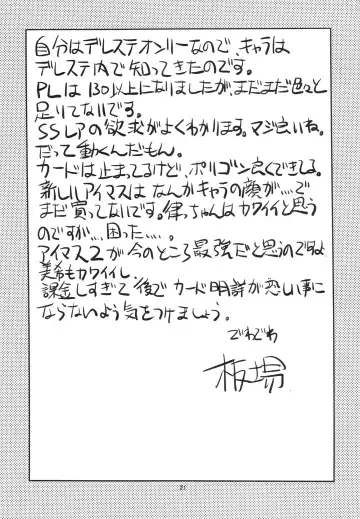 自分はデレステオンリーなので、キャラは
デレステ内で知ってきたのです。
PLは130以上になりましたが、まだまだ色々と
足りてないです。
SSレアの欲求がよくわかります。マジ良いね。
だって動くんだもん。
カードは止まってるけど、ポリゴン良くできてる。
新しいアイマスはなんかキャラの顔が…で
まだ買ってないです。律っちゃんはカワイイと思う
のですが…困った…。
アイマス2が今のところ最強だと思うのですよ
美希もカワイイし。
課金しすぎて後でカード明詳が恐い事に
ならないよう気をつけましょう。
でわでわ
板場
21